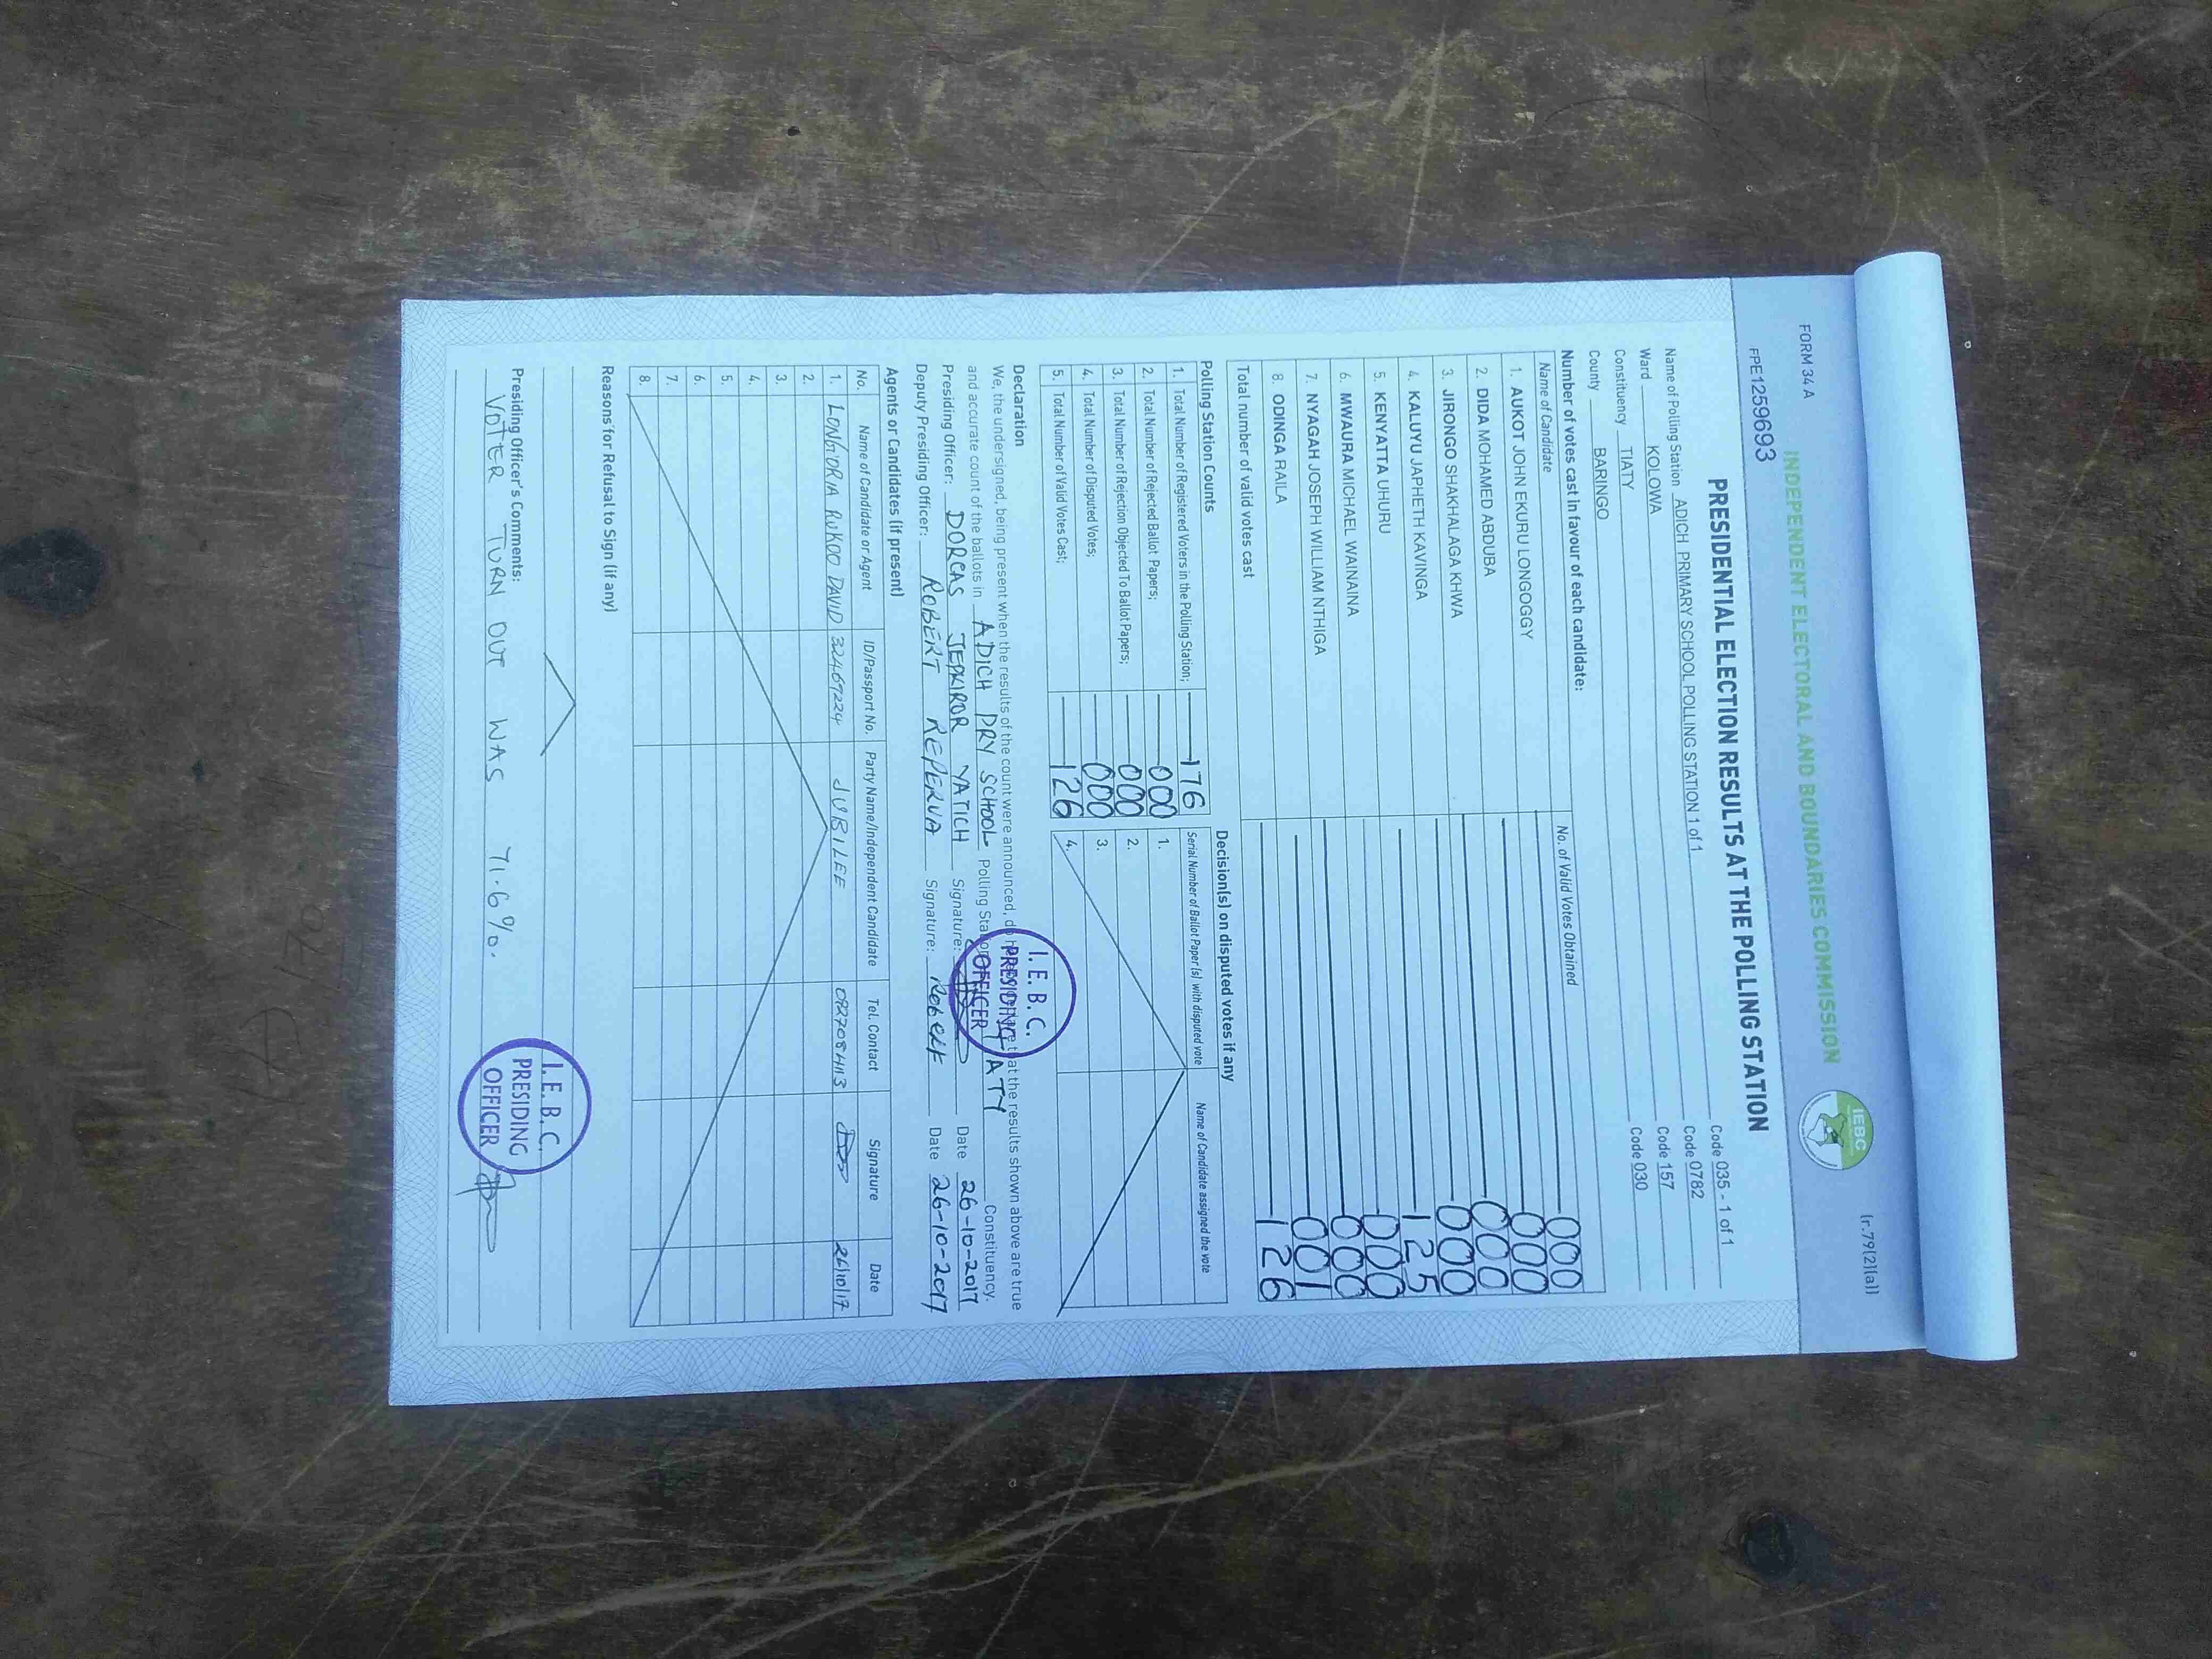 FORM 34 A
(r.79(2)(a))
INDEPENDENT ELECTORAL AND BOUNDARIES COMMISSION
IEBC
FPE1259693
PRESIDENTIAL ELECTION RESULTS AT THE POLLING STATION
Name of Polling Station ADICH PRIMARY SCHOOL POLLING STATION 1 of 1 Code 035 - 1 of 1
Ward KOLOWA Code 0782
Constituency TIATY Code 157
County BARINGO Code 030
Number of votes cast in favour of each candidate:
Name of Candidate No. of Valid Votes Obtained
1. AUKOT JOHN EKURU LONGOGGY 000
2. DIDA MOHAMED ABDUBA 000
3. JIRONGO SHAKHALAGA KHWA 000
4. KALUYU JAPHETH KAVINGA 000
5. KENYATTA UHURU 125
6. MWAURA MICHAEL WAINAINA 000
7. NYAGAH JOSEPH WILLIAM NTHIGA 000
8. ODINGA RAILA 001
Total number of valid votes cast 126
Polling Station Counts
1. Total Number of Registered Voters in the Polling Station; 176
2. Total Number of Rejected Ballot Papers; 000
3. Total Number of Rejection Objected To Ballot Papers; 000
4. Total Number of Disputed Votes; 000
5. Total Number of Valid Votes Cast; 126
Decision(s) on disputed votes if any
Serial Number of Ballot Paper (s) with disputed vote Name of Candidate assigned the vote
1.
2.
3.
4.
Declaration
We, the undersigned, being present when the results of the count were announced, do hereby declare that the results shown above are true
and accurate count of the ballots in ADICH PRY SCHOOL Polling Station TIATY Constituency.
Presiding Officer: DORCAS JEPKIROR YATICH Signature: Date 26-10-2017
Deputy Presiding Officer: ROBERT REPERUA Signature: Robert Date 26-10-2017
I. E. B. C.
PRESIDING
OFFICER
Agents or Candidates (if present)
No. Name of Candidate or Agent ID/Passport No. Party Name/Independent Candidate Tel. Contact Signature Date
1. LONGORIA RUKOO DAVID 32469224 JUBILEE 0827084113 26/10/17
2.
3.
4.
5.
6.
7.
8.
Reasons for Refusal to Sign (if any)
Presiding Officer's Comments:
VOTER TURN OUT WAS 71.6%.
I. E. B. C.
PRESIDING
OFFICER